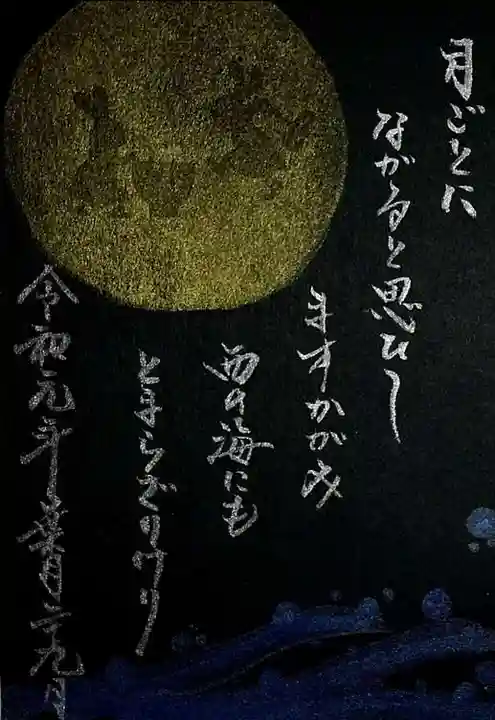 月ごとに
ながると思ひし
ますかがみ
西の海にも
とまらざりけり
令和元年葉月二九日